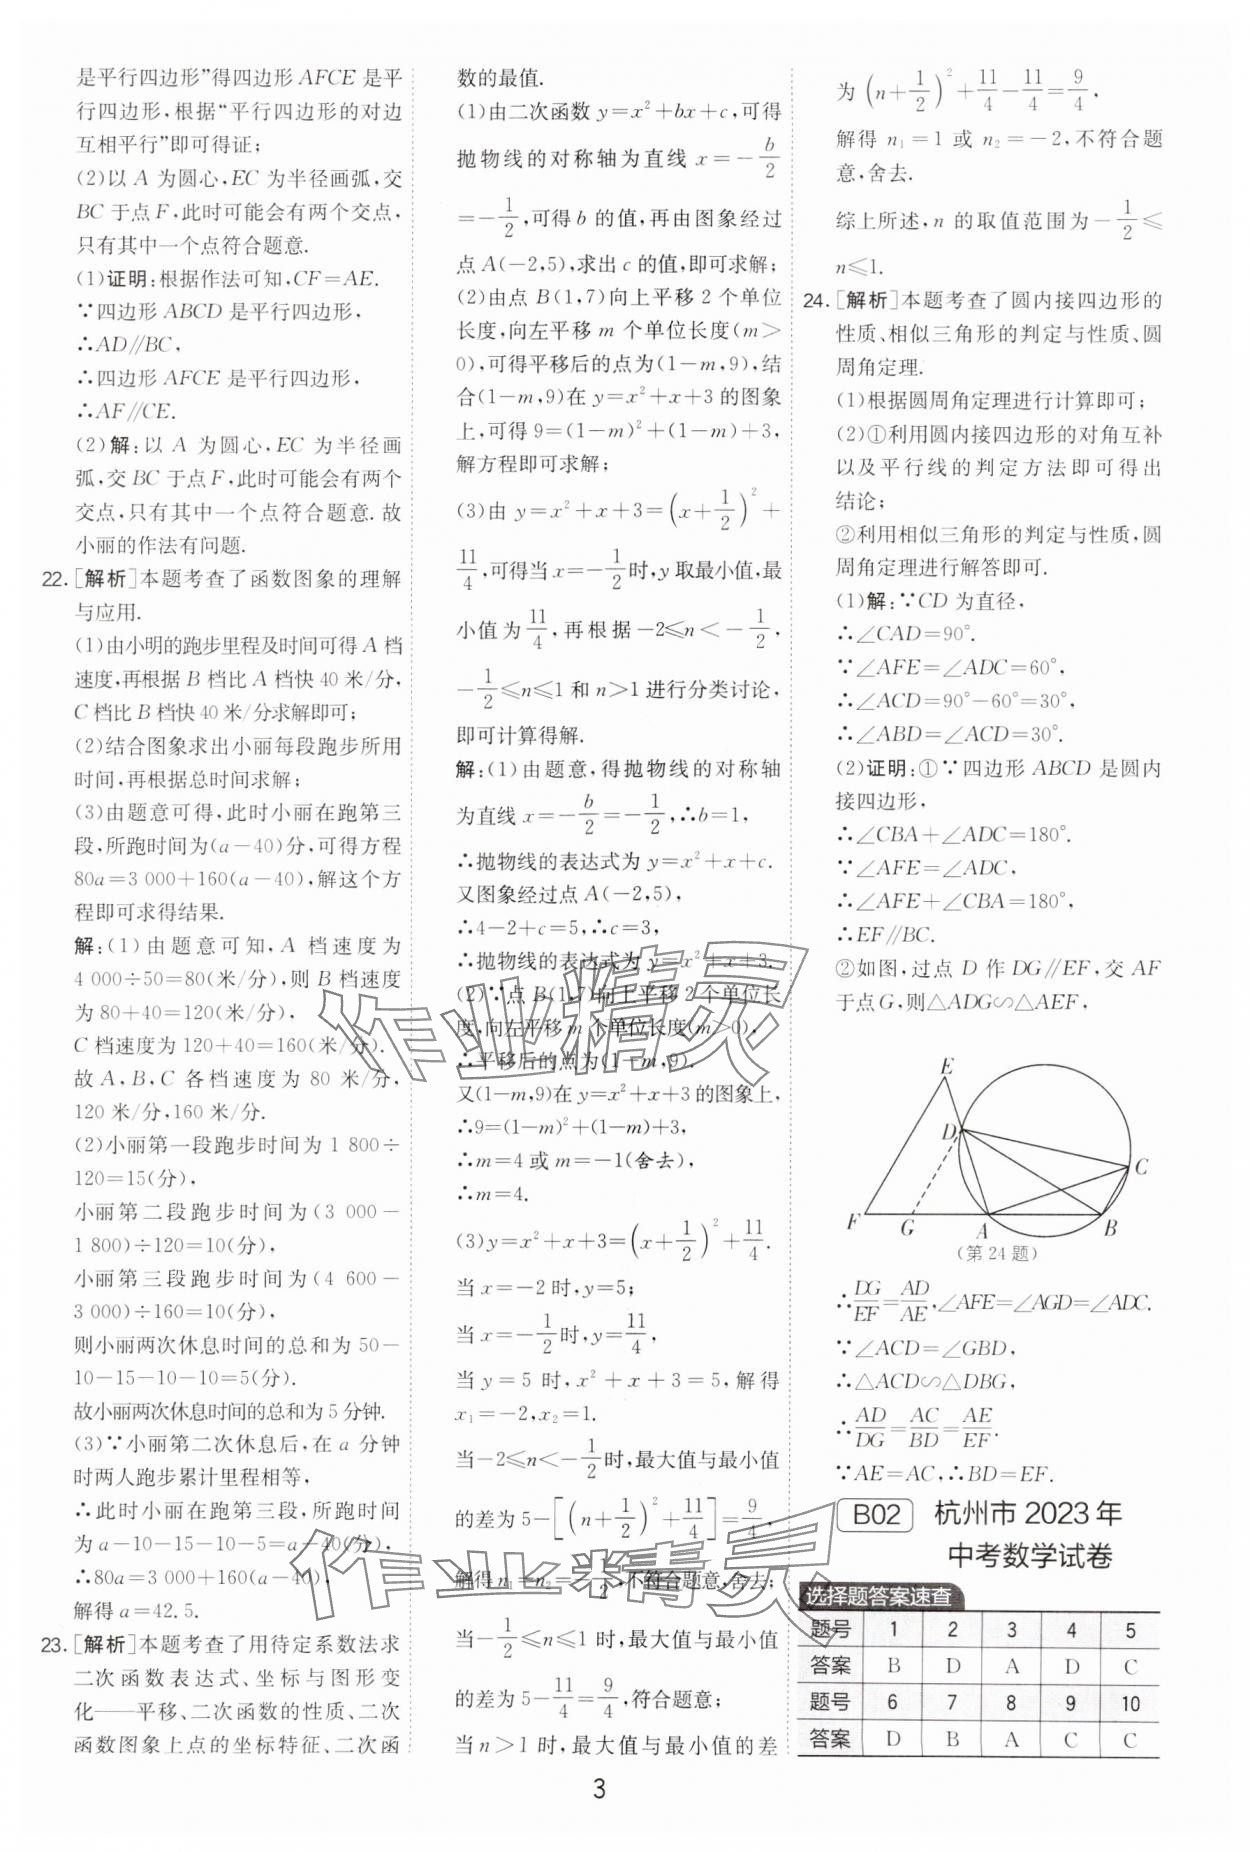 是平行四边形”得四边形 AFCE 是平
行四边形,根据“平行四边形的对边
互相平行”即可得证;
(2)以 A 为圆心,EC 为半径画弧,交
BC 于点 F,此时可能会有两个交点,
只有其中一个点符合题意.
(1)证明:根据作法可知,CF=AE.
∵四边形 ABCD 是平行四边形,
∴AD∥BC,
∴四边形 AFCE 是平行四边形,
∴AF∥CE.
(2)解:以 A 为圆心,EC 为半径画
弧,交 BC 于点 F,此时可能会有两个
交点,只有其中一个点符合题意. 故
小丽的作法有问题.
22. [解析]本题考查了函数图象的理解
与应用.
(1)由小明的跑步里程及时间可得 A 档
速度,再根据 B 档比 A 档快 40 米/分,
C 档比 B 档快 40 米/分求解即可;
(2)结合图象求出小丽每段跑步所用
时间,再根据总时间求解;
(3)由题意可得,此时小丽在跑第三
段,所跑时间为(a-40)分,可得方程
80a=3 000+160(a-40),解这个方
程即可求得结果.
解:(1)由题意可知,A 档速度为
4 000÷50=80(米/分),则 B 档速度
为 80+40=120(米/分),
C 档速度为 120+40=160(米/分).
故 A,B,C 各档速度为 80 米/分,
120 米/分,160 米/分.
(2)小丽第一段跑步时间为 1 800÷
120=15(分),
小丽第二段跑步时间为(3 000-
1 800)÷120=10(分),
小丽第三段跑步时间为(4 600-
3 000)÷160=10(分),
则小丽两次休息时间的总和为 50-
10-15-10-10=5(分).
故小丽两次休息时间的总和为 5 分钟.
(3)∵小丽第二次休息后,在 a 分钟
时两人跑步累计里程相等,
∴此时小丽在跑第三段,所跑时间
为 a-10-15-10-5=a-40(分),
∴80a=3 000+160(a-40),
解得 a=42.5.
23. [解析]本题考查了用待定系数法求
二次函数表达式、坐标与图形变
化——平移、二次函数的性质、二次
函数图象上点的坐标特征、二次函
数的最值.
(1)由二次函数 y=x²+bx+c,可得
抛物线的对称轴为直线 x=-b/2
=-1/2,可得 b 的值,再由图象经过
点 A(-2,5),求出 c 的值,即可求解;
(2)由点 B(1,7)向上平移 2 个单位
长度,向左平移 m 个单位长度(m>
0),可得平移后的点为(1-m,9),结
合(1-m,9)在 y=x²+x+3 的图象
上,可得 9=(1-m)²+(1-m)+3,
解方程即可求解;
(3)由 y=x²+x+3=(x+1/2)²+
11/4,可得当 x=-1/2时,y 取最小值,最
小值为 11/4,再根据-2≤n<-1/2,
-1/2≤n≤1 和 n>1 进行分类讨论,
即可计算得解.
解:(1)由题意,得抛物线的对称轴
为直线 x=-b/2=-1/2,∴b=1,
∴抛物线的表达式为 y=x²+x+c.
又图象经过点 A(-2,5),
∴4-2+c=5,∴c=3,
∴抛物线的表达式为 y=x²+x+3.
(2)∵点 B(1,7)向上平移 2 个单位长
度,向左平移 m 个单位长度(m>0),
∴平移后的点为(1-m,9).
又(1-m,9)在 y=x²+x+3 的图象上,
∴9=(1-m)²+(1-m)+3,
∴m=4 或 m=-1(舍去),
∴m=4.
(3)y=x²+x+3=(x+1/2)²+11/4.
当 x=-2 时,y=5;
当 x=-1/2时,y=11/4,
当 y=5 时,x²+x+3=5,解得
x₁=-2,x₂=1.
当-2≤n<-1/2时,最大值与最小值
的差为 5-[(n+1/2)²+11/4]=9/4,
解得 n₁=n₂=-1/2,不符合题意,舍去;
当-1/2≤n≤1 时,最大值与最小值
的差为 5-11/4=9/4,符合题意;
当 n>1 时,最大值与最小值的差
为(n+1/2)²+11/4-11/4=9/4,
解得 n₁=1 或 n₂=-2,不符合题
意,舍去.
综上所述,n 的取值范围为-1/2≤
n≤1.
24. [解析]本题考查了圆内接四边形的
性质、相似三角形的判定与性质、圆
周角定理.
(1)根据圆周角定理进行计算即可;
(2)①利用圆内接四边形的对角互补
以及平行线的判定方法即可得出
结论;
②利用相似三角形的判定与性质,圆
周角定理进行解答即可.
(1)解:∵CD 为直径,
∴∠CAD=90°.
∵∠AFE=∠ADC=60°,
∴∠ACD=90°-60°=30°,
∴∠ABD=∠ACD=30°.
(2)证明:①∵四边形 ABCD 是圆内
接四边形,
∴∠CBA+∠ADC=180°.
∵∠AFE=∠ADC,
∴∠AFE+∠CBA=180°,
∴EF∥BC.
②如图,过点 D 作 DG∥EF,交 AF
于点 G,则△ADG∽△AEF,
E
D
C
F G A B
(第 24 题)
∴DG/EF=AD/AE,∠AFE=∠AGD=∠ADC.
∵∠ACD=∠GBD,
∴△ACD∽△DBG,
∴AD/DG=AC/BD=AE/EF.
∵AE=AC,∴BD=EF.
B02 杭州市 2023 年
中考数学试卷
选择题答案速查
题号 1 2 3 4 5
答案 B D A D C
题号 6 7 8 9 10
答案 D B A C C
3
作业精灵
作业精灵